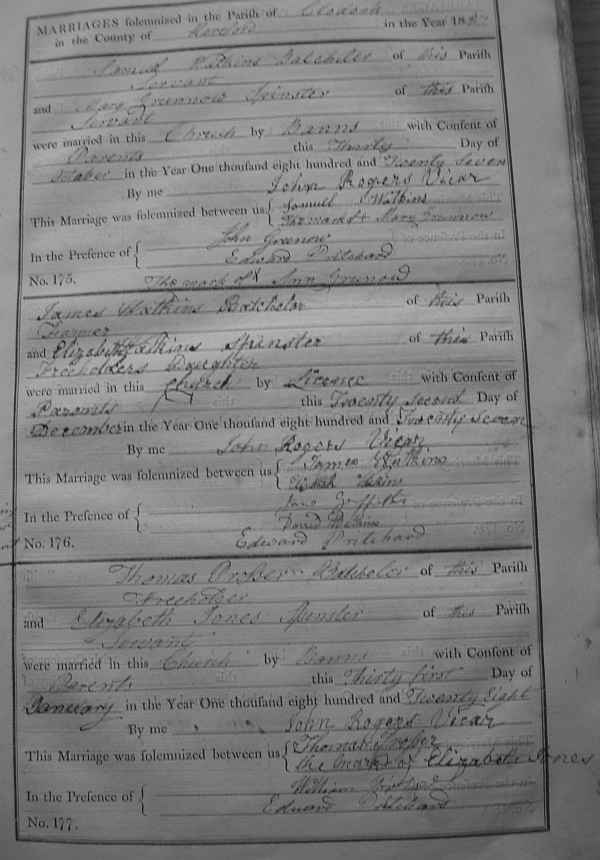 MARRIAGES solemnized in the Parish of Clodock
in the County of Hereford in the Year 182
Samuel Watkins Batcheler of this Parish
Servant
and Mary Grunnow Spinster of this Parish
Servant
were married in this Church by Banns with Consent of
Parents this Thirty Day of
October in the Year One thousand eight hundred and Twenty Seven
By me John Rogers Vicar
This Marriage was solemnized between us { Samuel Watkins
The mark of + Mary Grunnow
In the Presence of { John Greenow
Edward Pritchard
No. 175. The mark of X Ann Grunod
James Watkins Batchelor of this Parish
Farmer
and Elizabeth Spinster of this Parish
Freeholders Daughter
were married in this Church by Licence with Consent of
Parents this Twenty Second Day of
December in the Year One thousand eight hundred and Twenty Seven
By me John Rogers Vicar
This Marriage was solemnized between us { James Watkins
In the Presence of {
David Watkins
No. 176. Edward Pritchard
Thomas Prosser Batcheler of this Parish
Freeholder
and Elizabeth Jones Spinster of this Parish
Servant
were married in this Church by Banns with Consent of
Parents this Thirty first Day of
January in the Year One thousand eight hundred and Twenty Eight
By me John Rogers Vicar
This Marriage was solemnized between us { Thomas Prosser
the mark of Elizabeth Jones
In the Presence of { William
Edward Pritchard
No. 177.